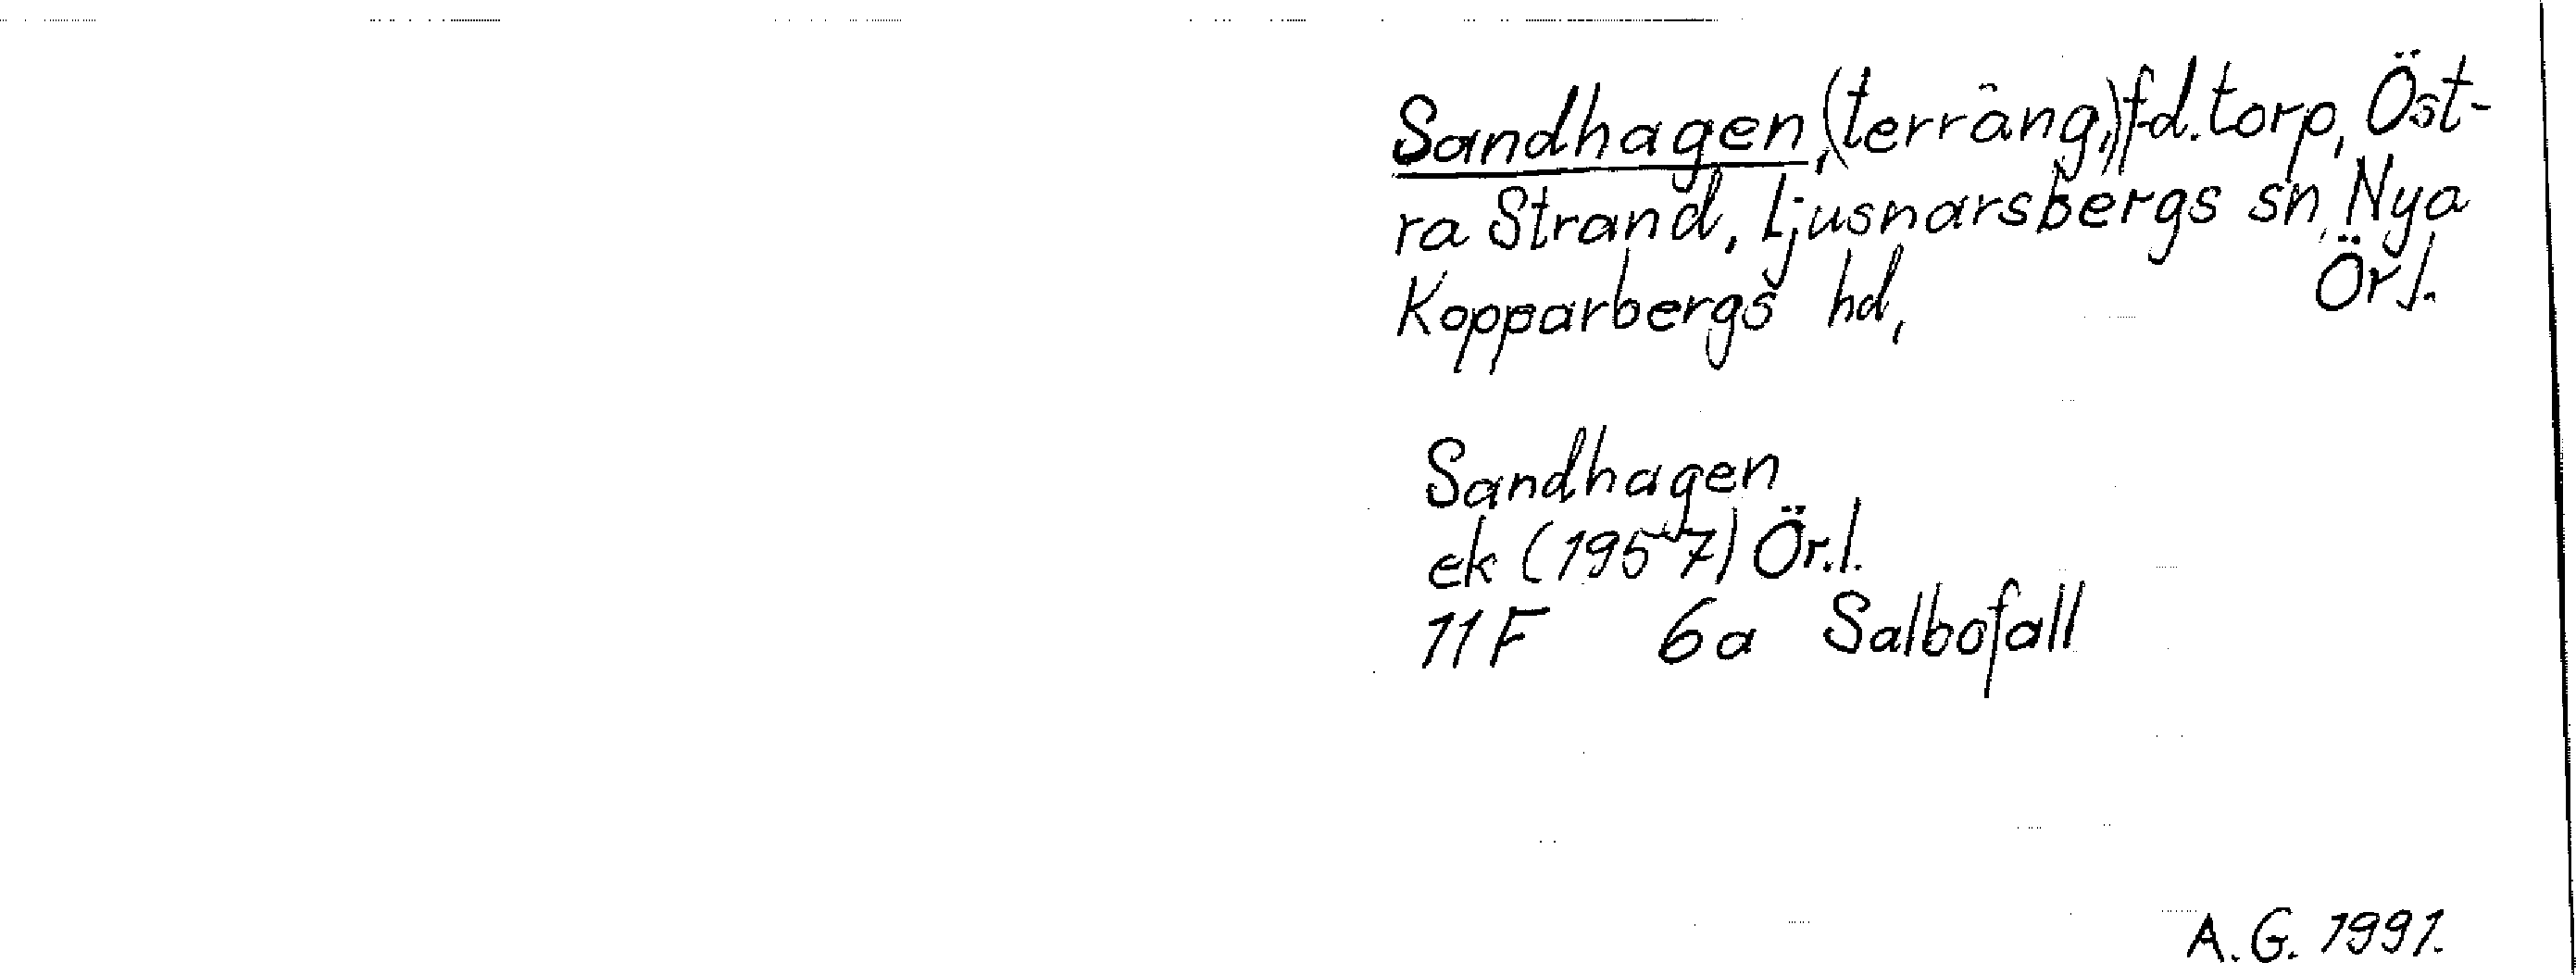 Sandhagen, (terräng,) f.d. torp, Öst-
ra Strand, Ljusnarsbergs sn, Nya
Kopparbergs hd, Ör.l.
Sandhagen
ek (1957) Ör.l.
11F 6a Salbofall
A.G. 1991.